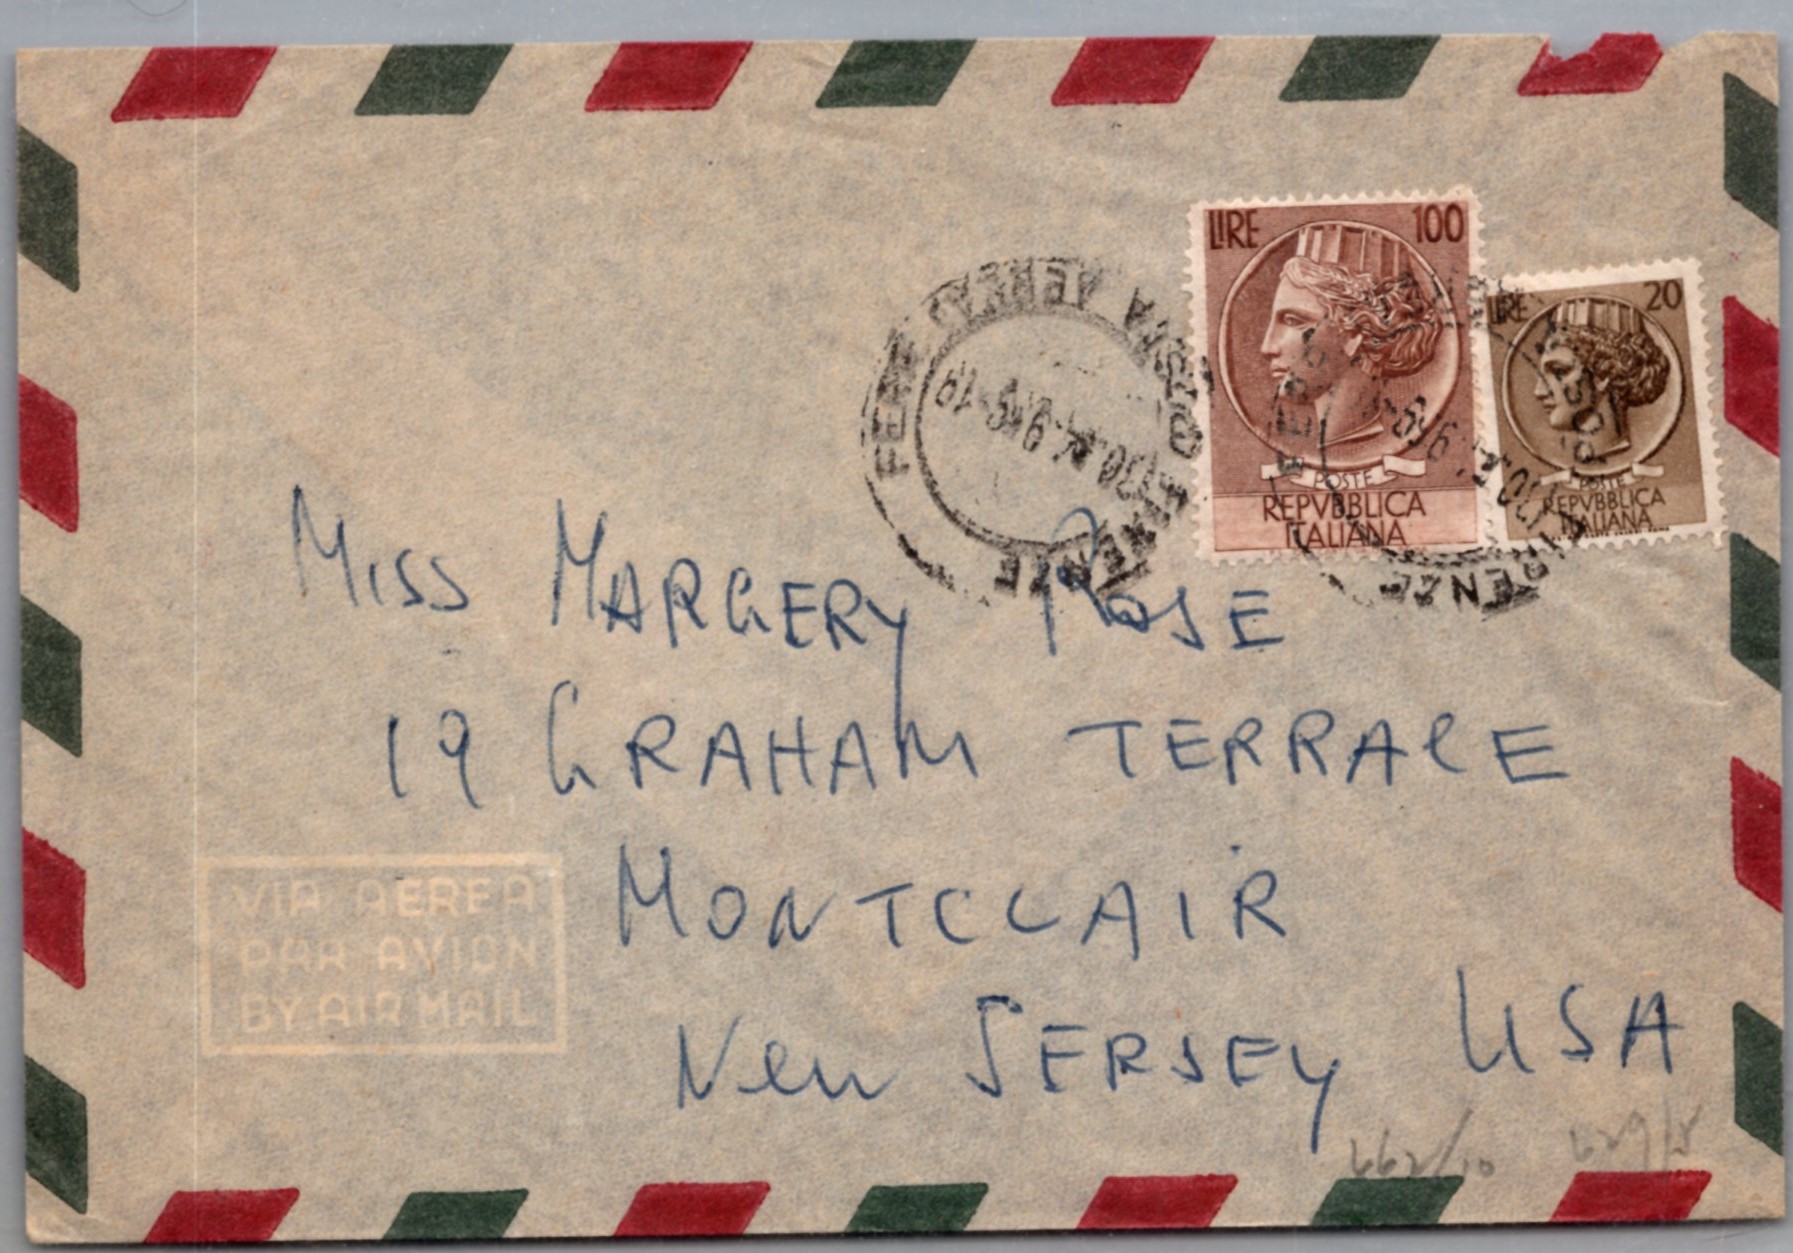 LIRE 100
POSTE
REPVBBLICA
ITALIANA
LIRE 20
POSTE
REPVBBLICA
ITALIANA
FERR POSTA AEREA
FIRENZE
FIRENZE
MISS MARGERY ROSE
19 GRAHAM TERRACE
MONTCLAIR
New JERSEY USA
VIA AEREA
PAR AVION
BY AIR MAIL
662/10 629/5